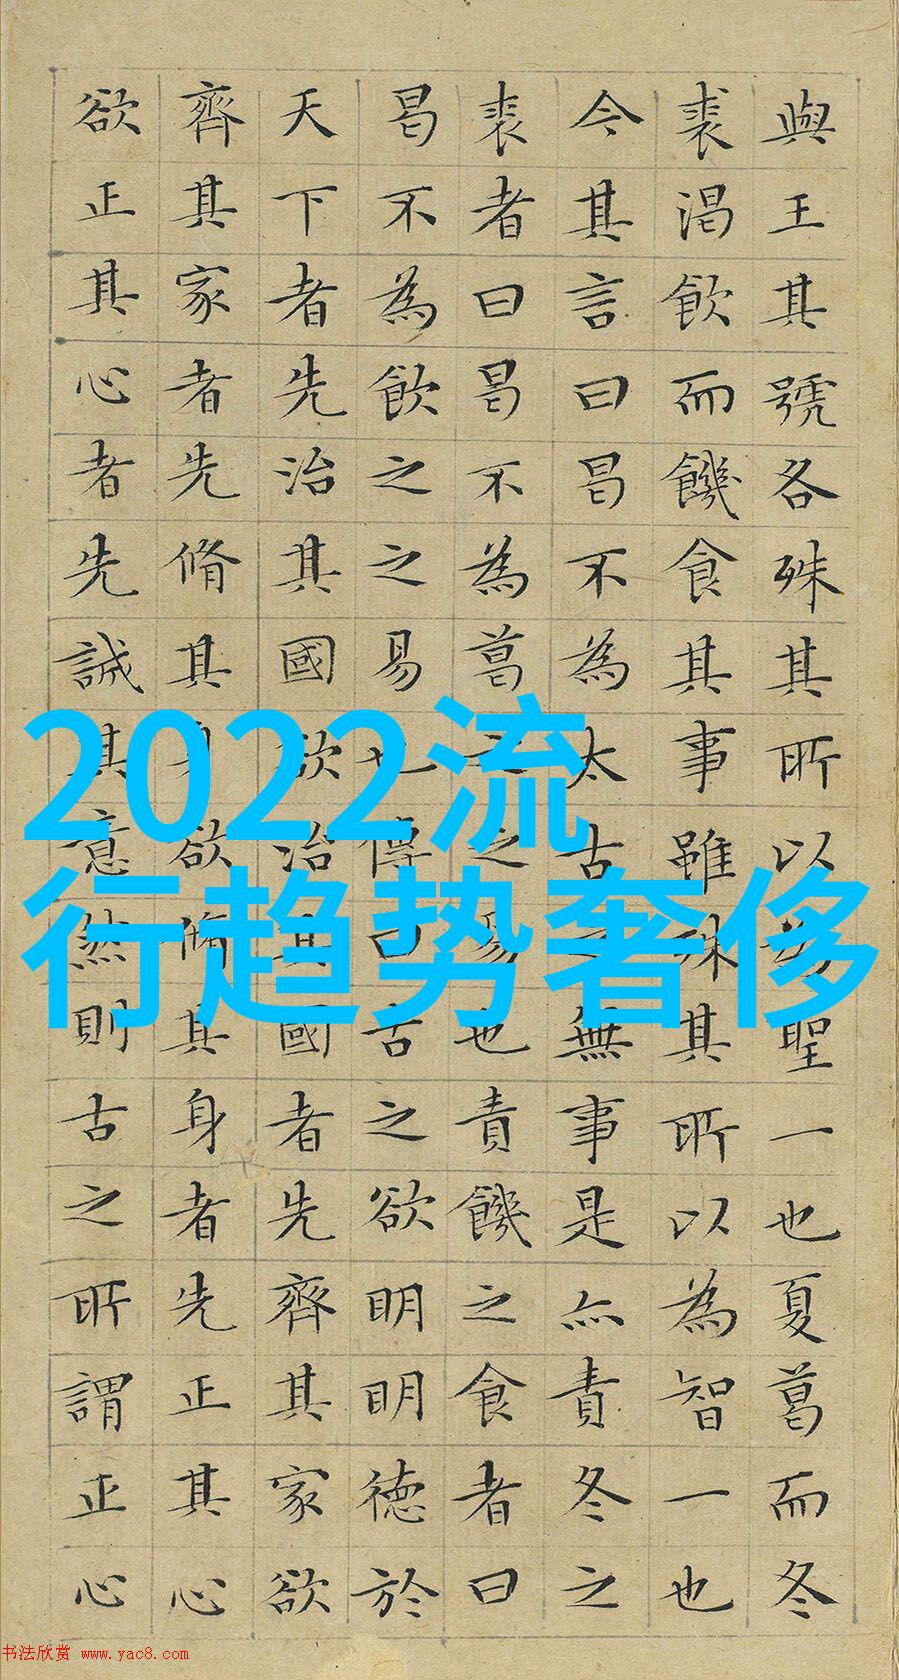 與王其號各殊其所以為聖一也夏葛而冬
裘渴飲而饑食其事雖殊其所以為智一也
今其言曰曷不為太古無事是亦責冬之
裘者曰曷不為葛之之易也責饑之食者曰
曷不為飲之之易也傳曰古之欲明明德於
天下者先治其國欲治其國者先齊其家欲
齊其家者先脩其身欲脩其身者先正其心
欲正其心者先誠其意然則古之所謂正心
2022流
行趋势奢侈
书法欣赏 www.yac8.com